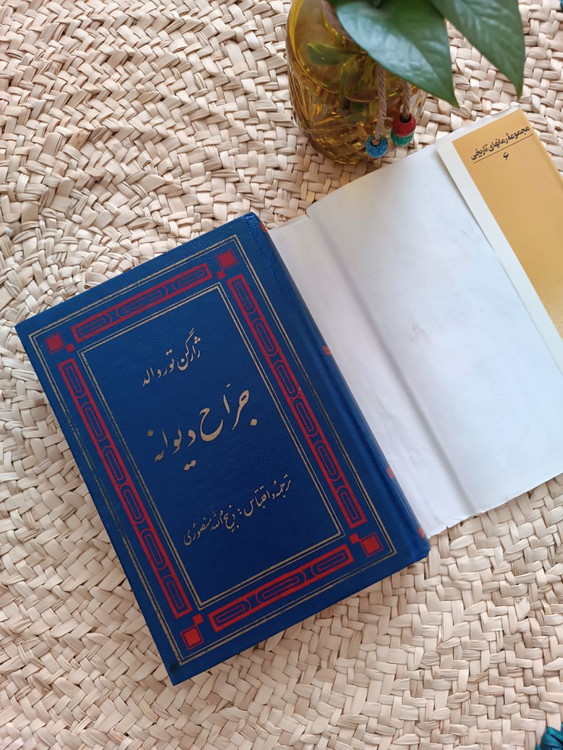 ژارگن توروالد
جراح دیوانه
ترجمه و اقتباس: ذبیح الله منصوری
مجموعهٔ رمانهای تاریخی
۶